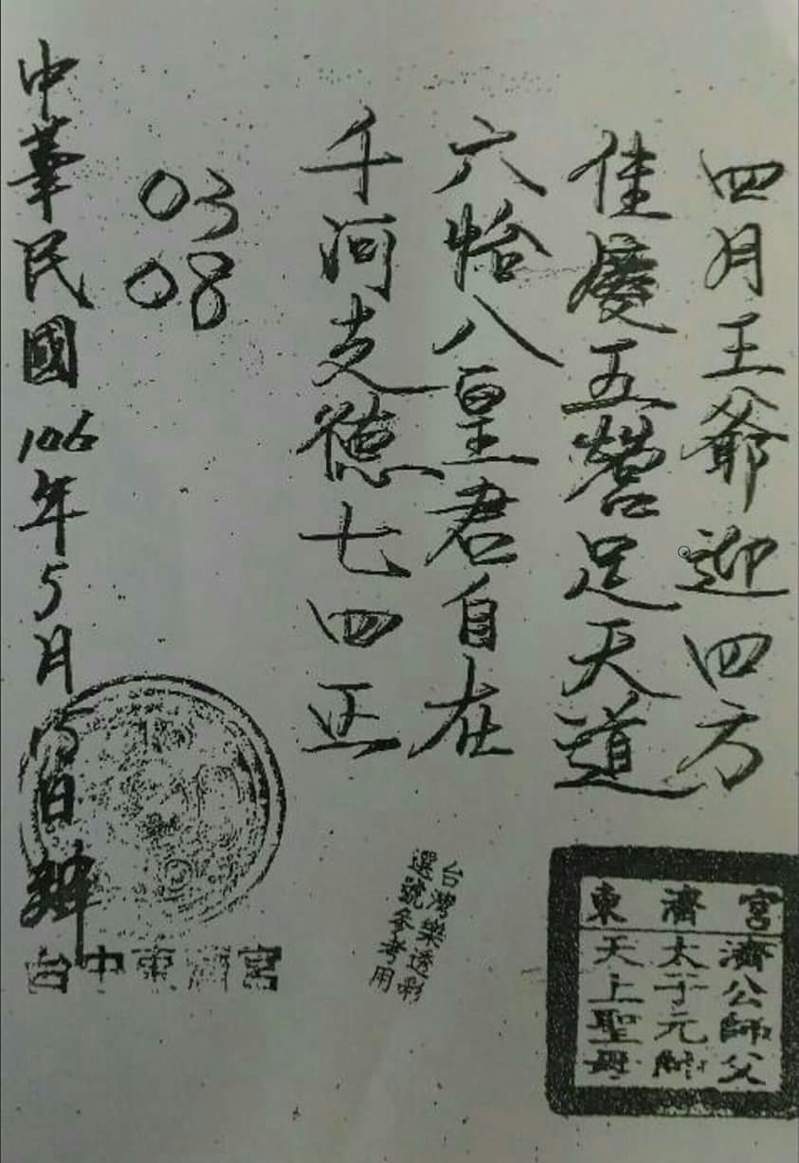 四月王爺迎四方
佳慶五營足天道
六怡八皇君自在
千河支德七四正
03
08
中華民國106年5月15日
台中東濟宮
台灣樂透彩
選號參考用
東濟宮
濟公師父
太子元帥
天上聖母